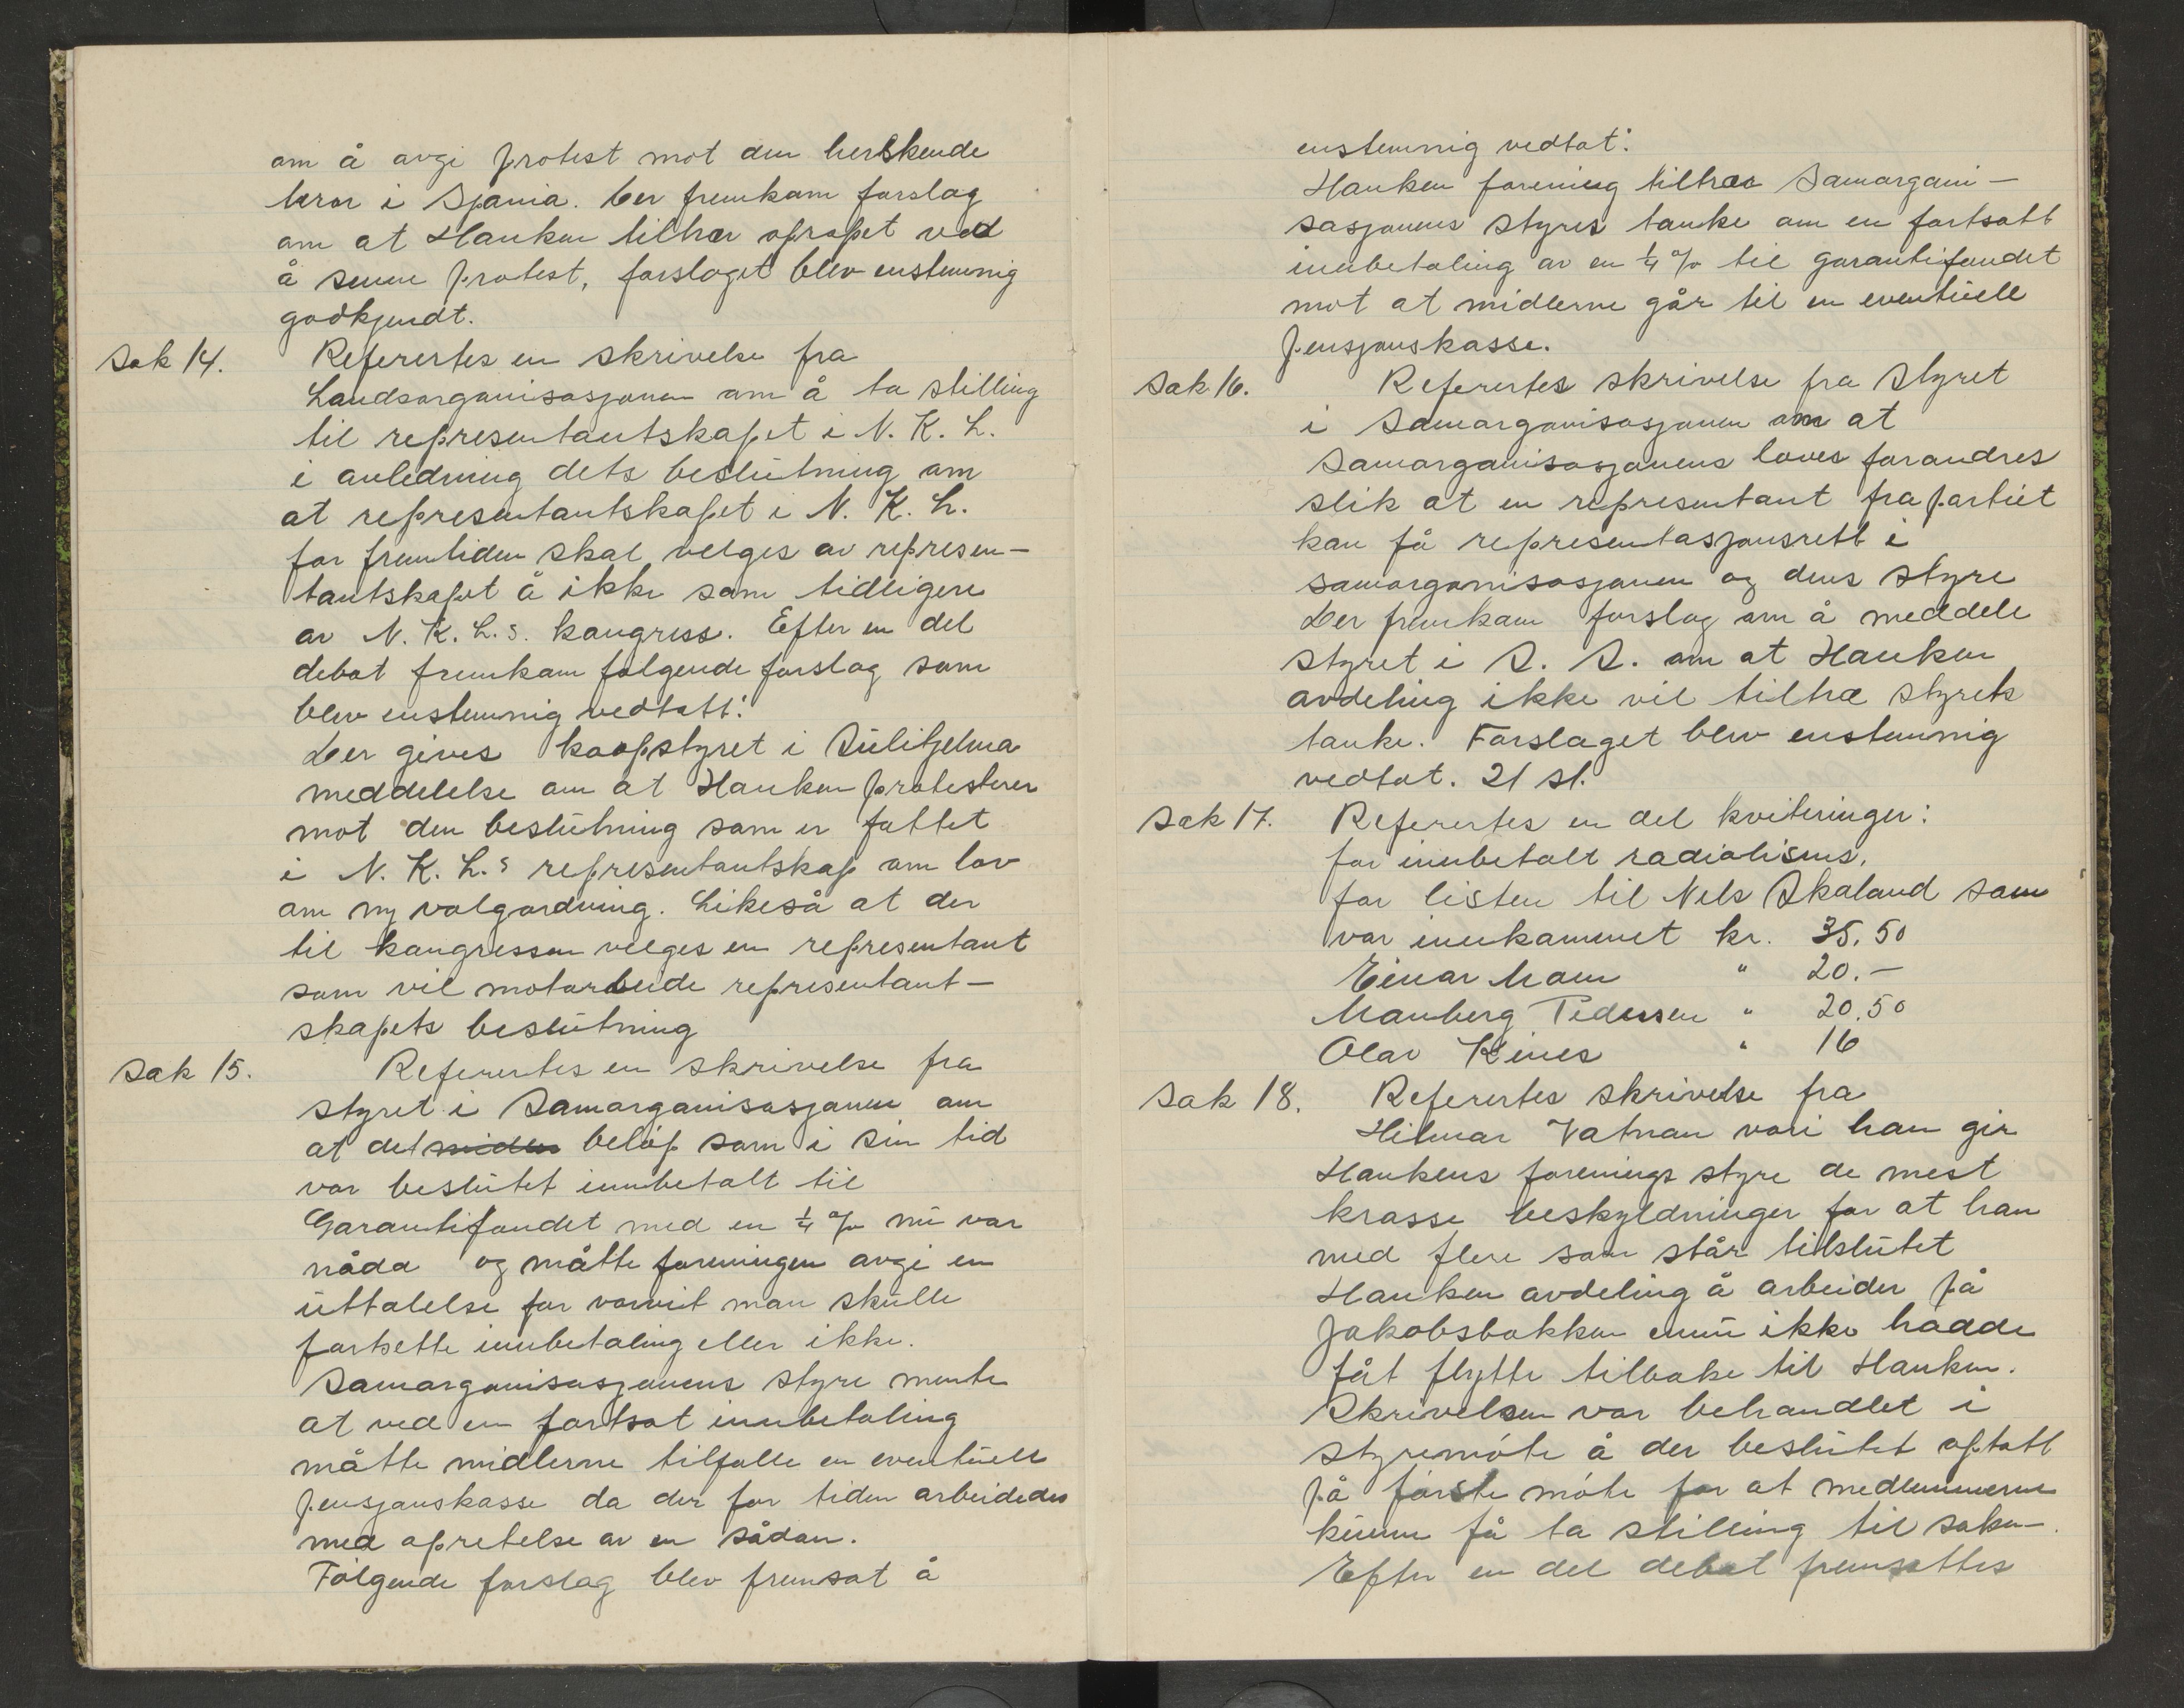 om å avgi protest mot den herskende
terror i Spania. Der fremkom forslag
om at Hanken tiltrær opropet ved
å senne protest, forslaget blev enstemmig
godkjendt.
Sak 14. Referertes en skrivelse fra
Landsorganisasjonen om å ta stilling
til representantskapet i N. K. L.
i anledning dets beslutning om
at representantskapet i N. K. L.
for fremtiden skal velges av represen-
tantskapet å ikke som tidligere
av N. K. L.s. kongress. Efter en del
debat fremkom følgende forslag som
blev enstemmig vedtatt:
Der gives koopstyret i Sulitjelma
meddelelse om at Hanken protesterer
mot den beslutning som er fattet
i N. K. L.s representantskap om lov
om ny valgordning. Likeså at der
til kongressen velges en representant
som vil motarbeide representant-
skapets beslutning
Sak 15. Referertes en skrivelse fra
styret i Samorganisasjonen om
at det midler beløp som i sin tid
var beslutet innbetalt til
Garantifondet med en ¼ % nu var
nåda og måtte foreningen avgi en
uttalelse for vorvit man skulle
fortsette innbetaling eller ikke.
Samorganisasjonens styre mente
at ved en fortsat innbetaling
måtte midlerne tilfalle en eventuell
pensjonskasse da der for tiden arbeidedes
med opretelse av en sådan.
Følgende forslag blev fremsat å
enstemmig vedtat:
Hanken forening tiltrær Samorgani-
sasjonens styres tanke om en fortsatt
innbetaling av en ¼ % til garantifondet
mot at midlerne går til en eventuell
pensjonskasse.
Sak 16. Referertes skrivelse fra styret
i Samorganisasjonen om at
Samorganisasjonens loves forandres
slik at en representant fra partiet
kan få representasjonsrett i
samorganisasjonen og dens styre
Der fremkom forslag om å meddele
styret i S. S. om at Hanken
avdeling ikke vil tiltræ styrets
tanke. Forslaget blev enstemmig
vedtat. 21 st.
Sak 17. Referertes en del kviteringer:
for innbetalt radiolisens,
for listen til Nels Skaland som
var innkommet kr. 35.50
Einar Moen " 20.-
Manberg Pedersen " 20.50
Olav Kines " 16
Sak 18. Referertes skrivelse fra
Hilmar Vatnan vori han gir
Hankens forenings styre de mest
krasse beskyldninger for at han
med flere som står tilslutet
Hanken avdeling å arbeider på
Jakobsbakken ennu ikke hadde
fåt flytte tilbake til Hanken.
Skrivelsen var behandlet i
styremøte å der beslutet optatt
på første møte for at medlemmerne
kunne få ta stilling til saken.
Efter en del debat fremsattes